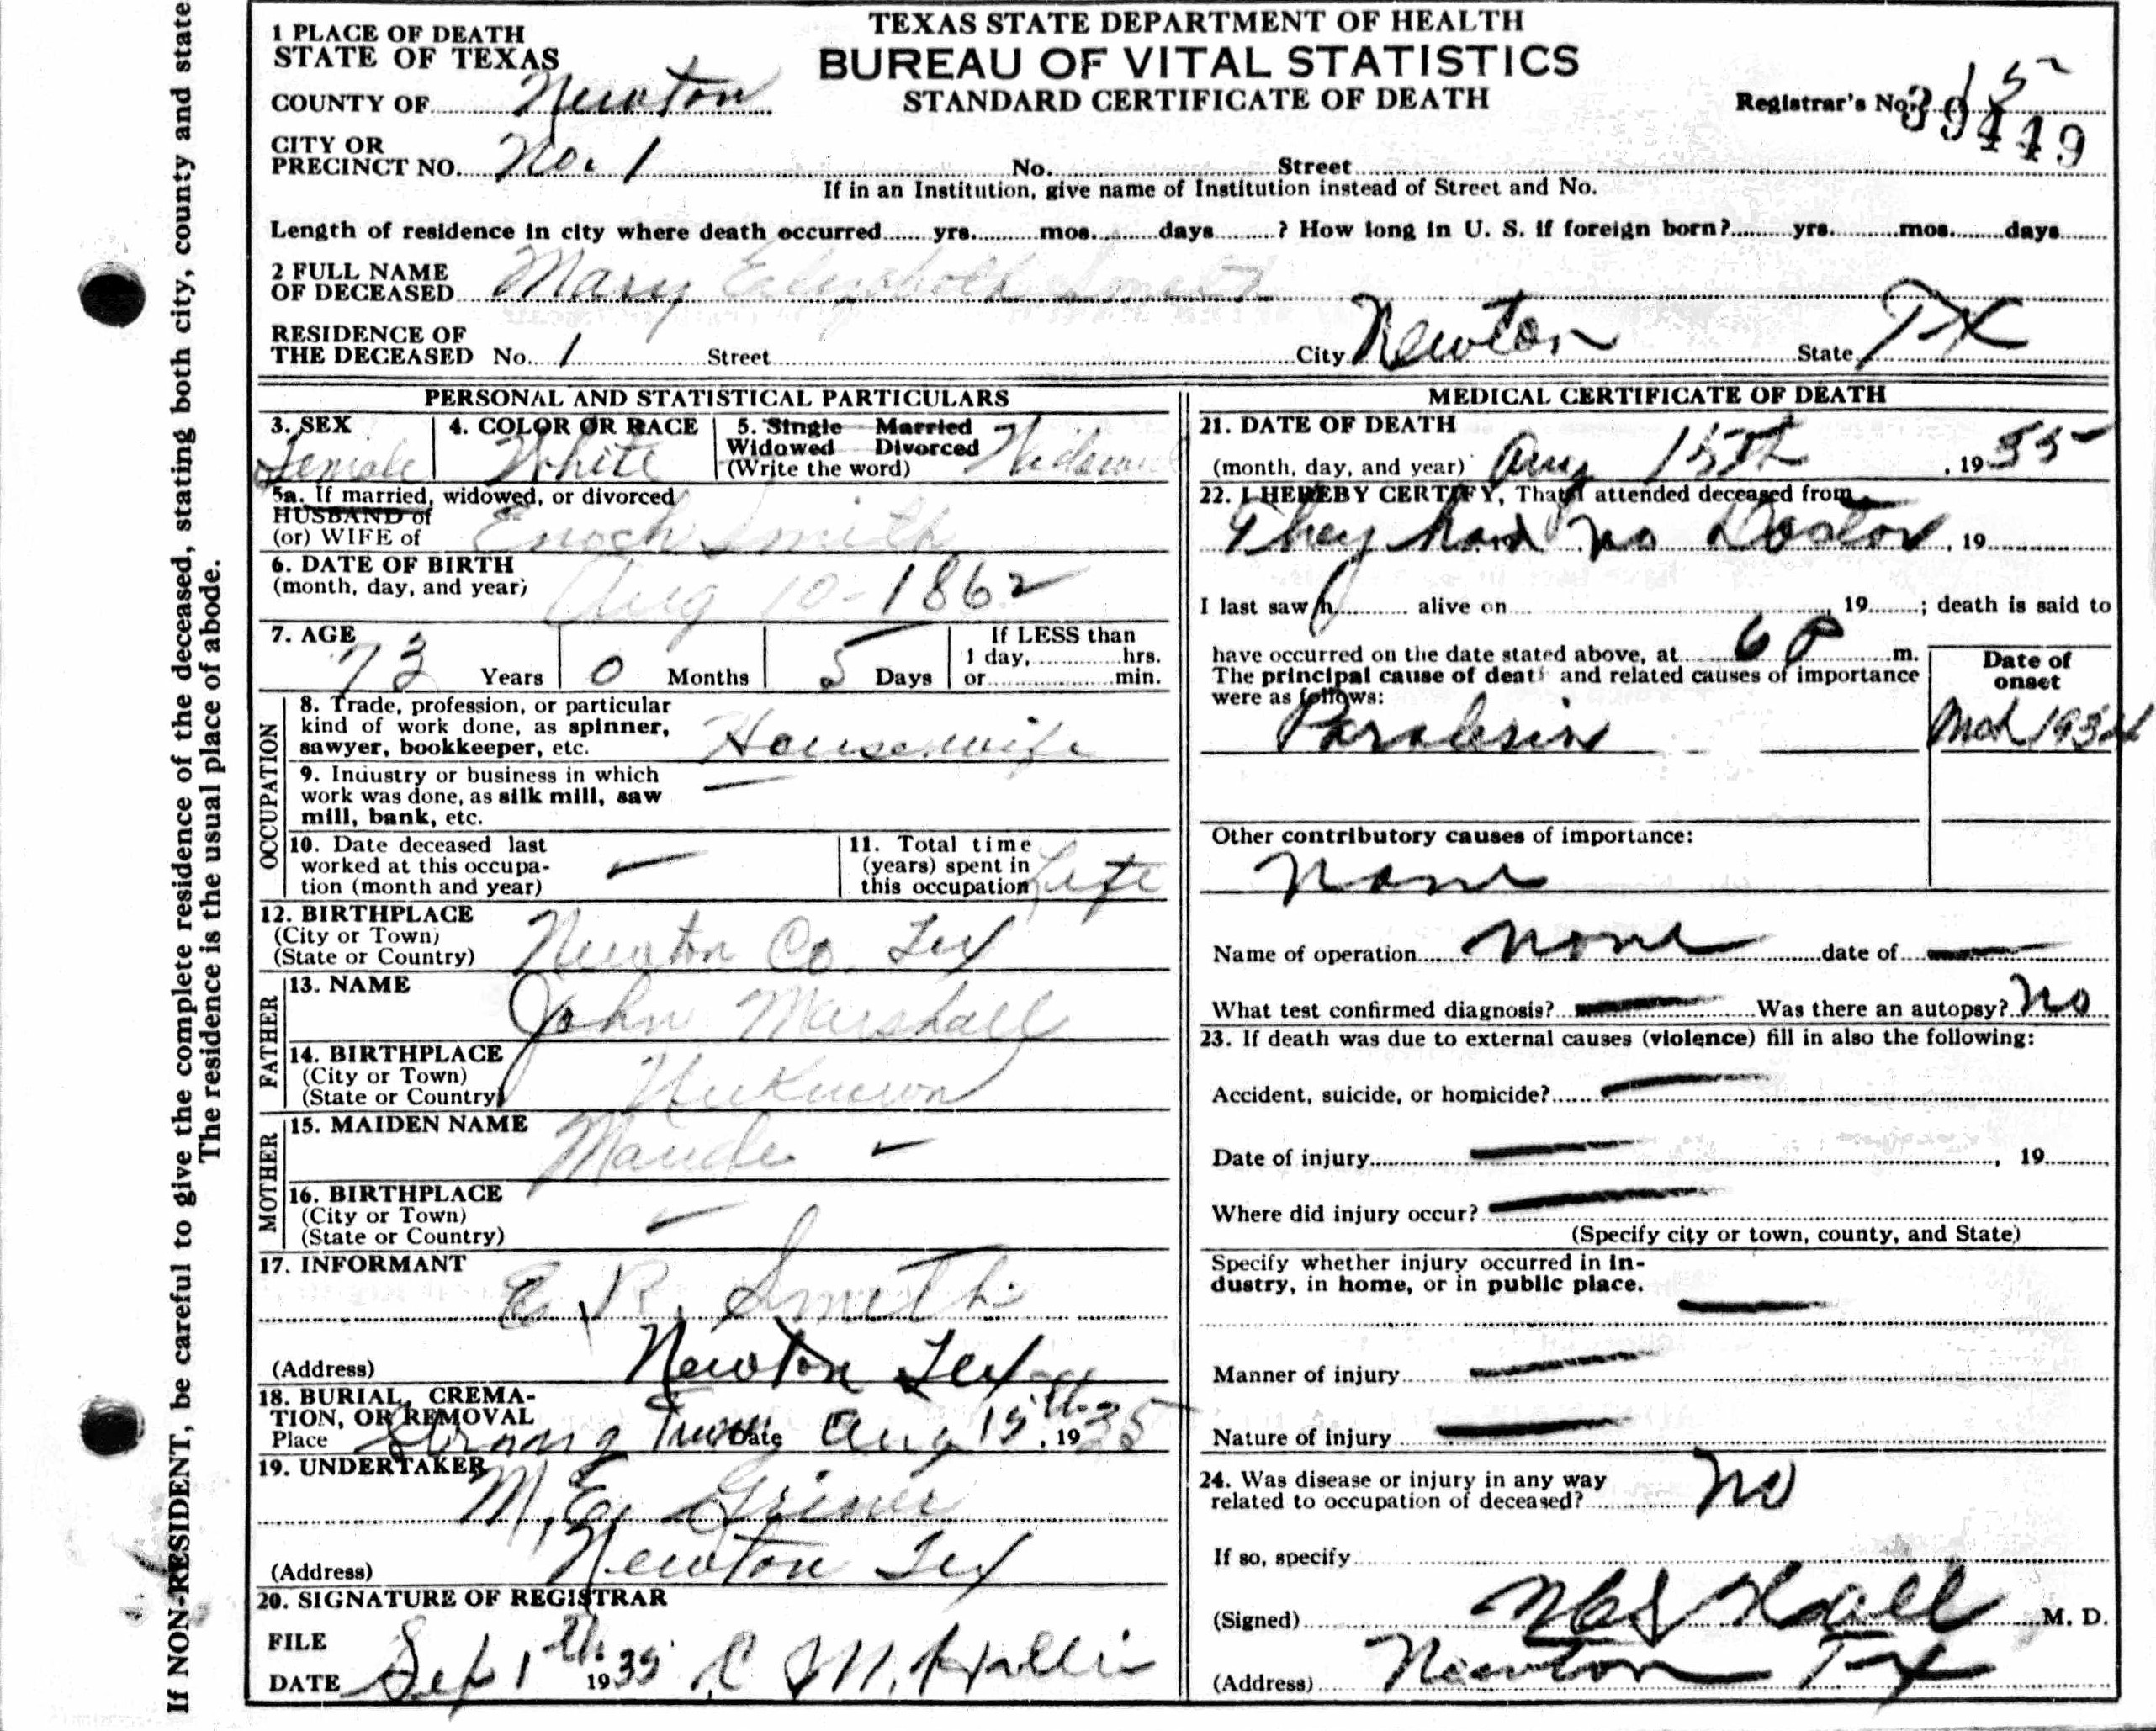 If NON-RESIDENT, be careful to give the complete residence of the deceased, stating both city, county and state
The residence is the usual place of abode.
TEXAS STATE DEPARTMENT OF HEALTH
BUREAU OF VITAL STATISTICS
STANDARD CERTIFICATE OF DEATH
1 PLACE OF DEATH
STATE OF TEXAS
COUNTY OF Newton
Registrar's No. 15
39449
CITY OR
PRECINCT NO. No. 1 No. Street
If in an Institution, give name of Institution instead of Street and No.
Length of residence in city where death occurred yrs. mos. days ? How long in U. S. if foreign born? yrs. mos. days
2 FULL NAME
OF DECEASED Mary Elizabeth Smith
RESIDENCE OF
THE DECEASED No. 1 Street City Newton State TX
PERSONAL AND STATISTICAL PARTICULARS
3. SEX
Female
4. COLOR OR RACE
White
5. Single Married
Widowed Divorced
(Write the word)
Widowed
5a. If married, widowed, or divorced
HUSBAND of
(or) WIFE of Enoch Smith
6. DATE OF BIRTH
(month, day, and year) Aug 10 - 1862
7. AGE
73 Years 0 Months 5 Days
If LESS than
1 day, hrs.
or min.
OCCUPATION
8. Trade, profession, or particular
kind of work done, as spinner,
sawyer, bookkeeper, etc. Housewife
9. Industry or business in which
work was done, as silk mill, saw
mill, bank, etc. —
10. Date deceased last
worked at this occupa-
tion (month and year)
11. Total time
(years) spent in
this occupation Life
12. BIRTHPLACE
(City or Town)
(State or Country) Newton Co. Tex
FATHER
13. NAME John Marshall
14. BIRTHPLACE
(City or Town)
(State or Country) Unknown
MOTHER
15. MAIDEN NAME Maude
16. BIRTHPLACE
(City or Town)
(State or Country)
17. INFORMANT
E. R. Smith
(Address) Newton Tex
18. BURIAL, CREMA-
TION, OR REMOVAL
Place Strong Date Aug 15th, 1935
19. UNDERTAKER
M. E. Griner
(Address) Newton Tex
20. SIGNATURE OF REGISTRAR
FILE
DATE Sep 1th 1935 M. Hollis
MEDICAL CERTIFICATE OF DEATH
21. DATE OF DEATH
(month, day, and year) Aug 15th, 1935
22. I HEREBY CERTIFY, That I attended deceased from
They had no Doctor, 19
I last saw h alive on , 19 ; death is said to
have occurred on the date stated above, at 6 P m.
The principal cause of death and related causes of importance
were as follows:
Date of
onset
Paralesis
Mch 1934
Other contributory causes of importance:
None
Name of operation none date of —
What test confirmed diagnosis? — Was there an autopsy? No
23. If death was due to external causes (violence) fill in also the following:
Accident, suicide, or homicide? —
Date of injury —, 19
Where did injury occur? —
(Specify city or town, county, and State)
Specify whether injury occurred in in-
dustry, in home, or in public place. —
Manner of injury —
Nature of injury —
24. Was disease or injury in any way
related to occupation of deceased? No
If so, specify
(Signed) Hall M. D.
(Address) Newton Tx